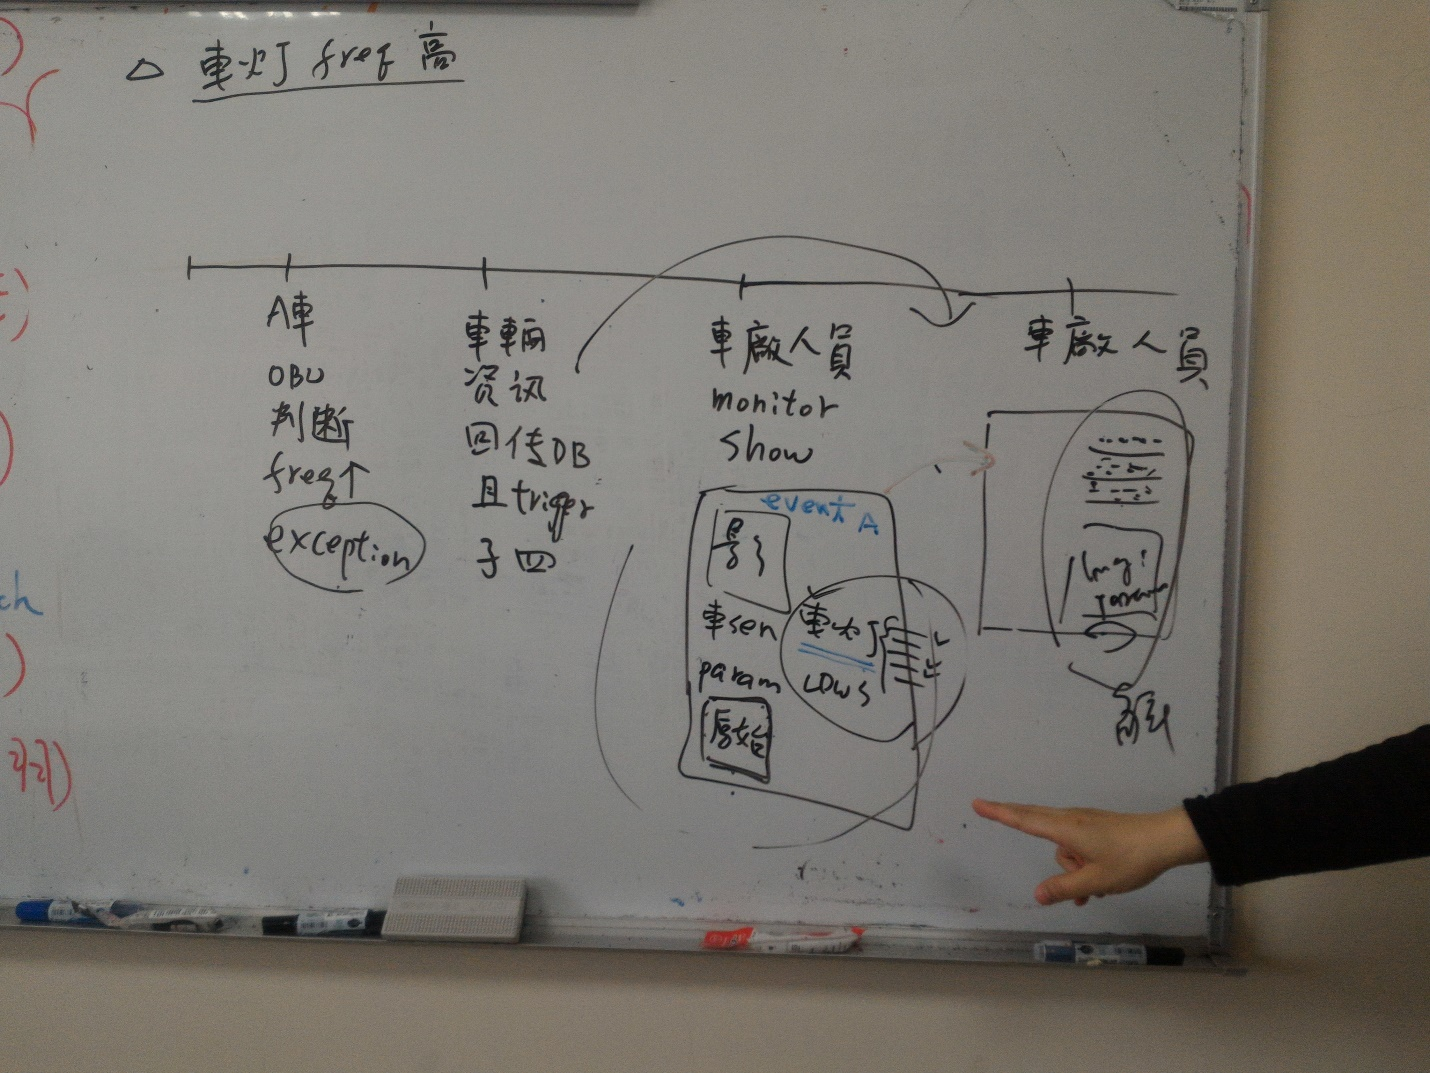 △ 車灯 freq 高
A車
OBU
判断
freq↑
exception
車輛
資讯
回传DB
且trigger
子四
車廠人員
monitor
show
event A
影
車sen
param
原始
車灯
LDWS
車廠人員